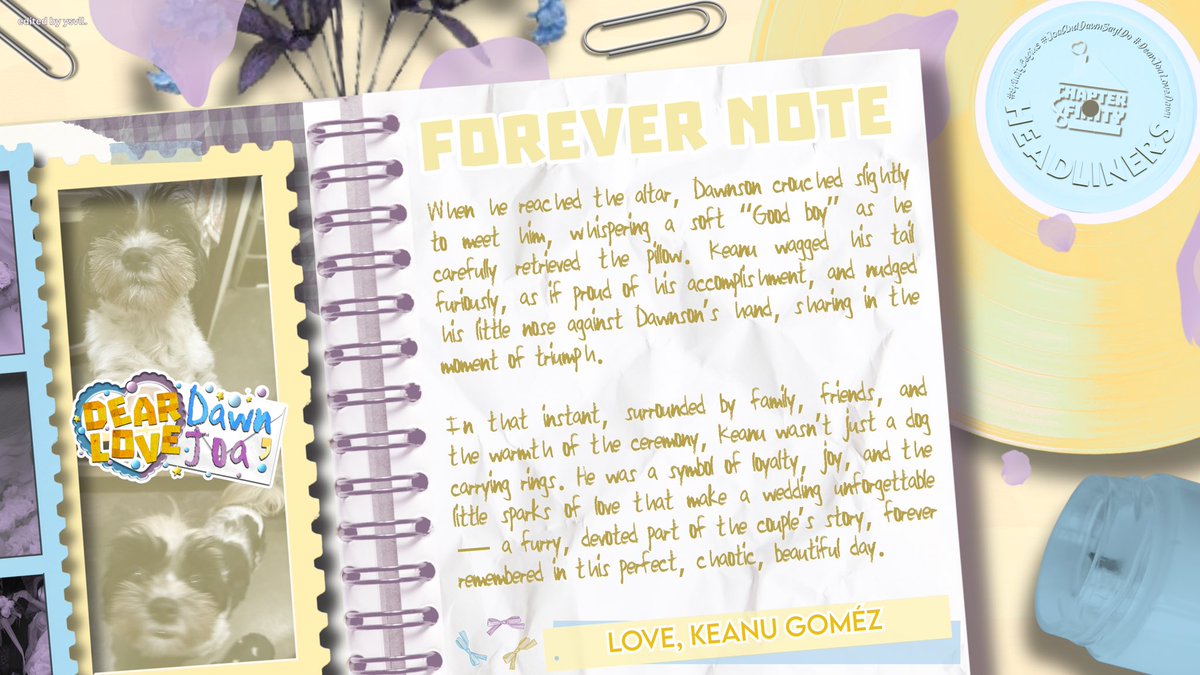 edited by ysvll.
FOREVER NOTE
When he reached the altar, Dawnson crouched slightly
to meet him, whispering a soft “Good boy” as he
carefully retrieved the pillow. Keanu wagged his tail
furiously, as if proud of his accomplishment, and nudged
his little nose against Dawnson's hand, sharing in the
moment of triumph.
In that instant, surrounded by family, friends, and
the warmth of the ceremony, Keanu wasn't just a dog
carrying rings. He was a symbol of loyalty, joy, and the
little sparks of love that make a wedding unforgettable
— a furry, devoted part of the couple's story, forever
remembered in this perfect, chaotic, beautiful day.
LOVE, KEANU GOMÉZ
DEAR
LOVE
Dawn
Joa,
#JoaAndDawnSayIDo #DearJoaLoveDawn
CHAPTER
FINITY
HEADLINERS